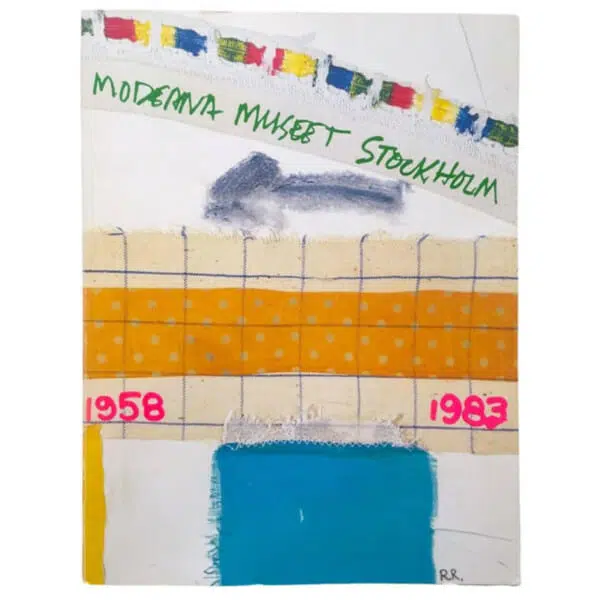 MODERNA MUSEET STOCKHOLM
1958 1983
R.R.